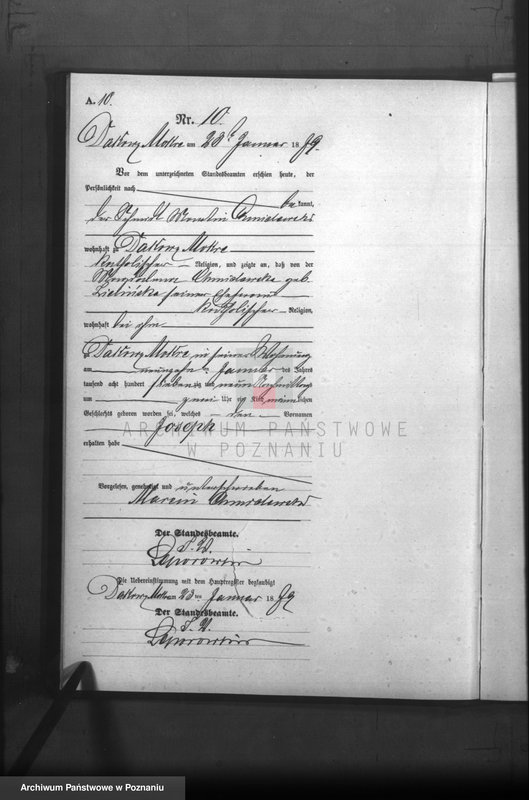 A. 10.
Nr. 10.
Dakowy Mokre am 23t Januar 1879.
Vor dem unterzeichneten Standesbeamten erschien heute, der
Persönlichkeit nach
bekannt,
der Schmidt Martin
wohnhaft zu Dakowy Mokre
katholischer Religion, und zeigte an, daß von der
Magdalena geb.
Zielinska seiner Ehefrau
katholischer Religion,
wohnhaft bei ihm
zu Dakowy Mokre in seiner Wohnung
am neunzehn Januar des Jahres
tausend acht hundert siebenzig und neun Nachmittags
um zwei Uhr ein Kind männlichen
Geschlechts geboren worden sei, welches den Vornamen
Joseph
erhalten habe
Vorgelesen, genehmigt und unterschrieben
Marcin
Der Standesbeamte.
Die Uebereinstimmung mit dem Hauptregister beglaubigt
Dakowy Mokre am 23 ten Januar 1879
Der Standesbeamte.
ARCHIWUM PAŃSTWOWE
W POZNANIU
Archiwum Państwowe w Poznaniu